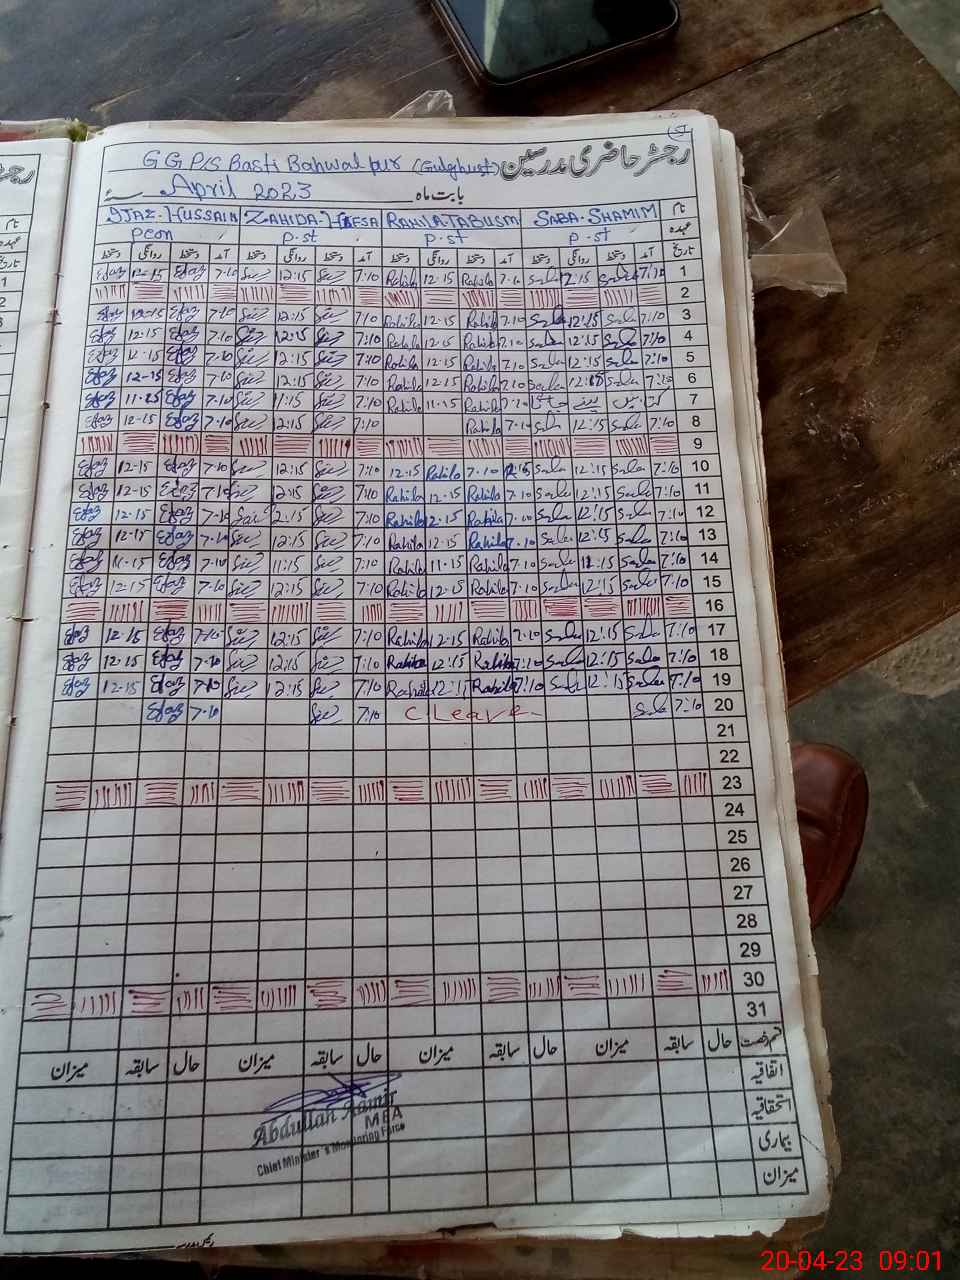 رجسٹر حاضری مدرسین
G G P/S Basti Bahwalpur (Gulghust)
بابت ماہ April 2023 سنہ
نام SABA-SHAMIM RAHILA TABUSM ZAHIDA-HAFSA IJAZ-HUSSAIN
عہدہ P.st P.st P.st peon
تاریخ آمد دستخط روانگی دستخط آمد دستخط روانگی دستخط آمد دستخط روانگی دستخط آمد دستخط روانگی دستخط
1 7:10 Saba 12:15 Saba 7.10 Rahila 12.15 Rahila 7:10 12:15 7.10 Ejaz 12-15 Ejaz
2
3 7:10 Saba 12:15 Saba 7.10 Rahila 12.15 Rahila 7:10 12:15 7.10 Ejaz 12-15 Ejaz
4 7:10 Saba 12:15 Saba 7.10 Rahila 12.15 Rahila 7:10 12:15 7.10 Ejaz 12.15 Ejaz
5 7:10 Saba 12:15 Saba 7.10 Rahila 12.15 Rahila 7:10 12:15 7.10 Ejaz 12.15 Ejaz
6 7:10 Saba Saba 7.10 Rahila 12.15 Rahila 7:10 12:15 7.10 Ejaz 12-15 Ejaz
7 7.10 Rahila 11.15 Rahila 7:10 11:15 7.10 Ejaz 11-15 Ejaz
8 7:10 Saba 12:15 Saba 7.10 Rahila 7:10 12:15 7.10 Ejaz 12-15 Ejaz
9
10 7:10 Saba 12:15 Saba 7.10 Rahila 12.15 7:10 12:15 7-10 Ejaz 12-15 Ejaz
11 7:10 Saba 12:15 Saba 7.10 Rahila 12.15 Rahila 7:10 12:15 7.10 Ejaz 12-15 Ejaz
12 7:10 Saba 12:15 Saba 7.10 Rahila 12.15 Rahila 7:10 12:15 7-10 Ejaz 12-15 Ejaz
13 7:10 Saba 12:15 Saba 7.10 Rahila 12.15 Rahila 7:10 12:15 7.10 Ejaz 12-15 Ejaz
14 7:10 Saba 11:15 Saba 7.10 Rahila 11.15 Rahila 7:10 11:15 7.10 Ejaz 11-15 Ejaz
15 7:10 Saba 12:15 Saba 7.10 Rahila 12.15 Rahila 7:10 12:15 7.10 Ejaz 12-15 Ejaz
16
17 7:10 Saba 12:15 Saba 7.10 Rahila 12.15 Rahila 7:10 12:15 7.10 Ejaz 12-15 Ejaz
18 7:10 Saba 12:15 Saba 7:10 Rahila 12.15 Rahila 7:10 12:15 7-10 Ejaz 12-15 Ejaz
19 7:10 Saba 12:15 Saba 7:10 Rahila 12:15 Rahila 7:10 12:15 7-10 Ejaz 12-15 Ejaz
20 7:10 Saba C Leave 7:10 7-10 Ejaz
21
22
23
24
25
26
27
28
29
30
31
قسم رخصت حال سابقہ میزان حال سابقہ میزان حال سابقہ میزان حال سابقہ میزان
اتفاقیہ
استحقاقیہ
بیماری
میزان
Abdullah Aamir
MEA
Chief Minister's Monitoring Force
20-04-23 09:01